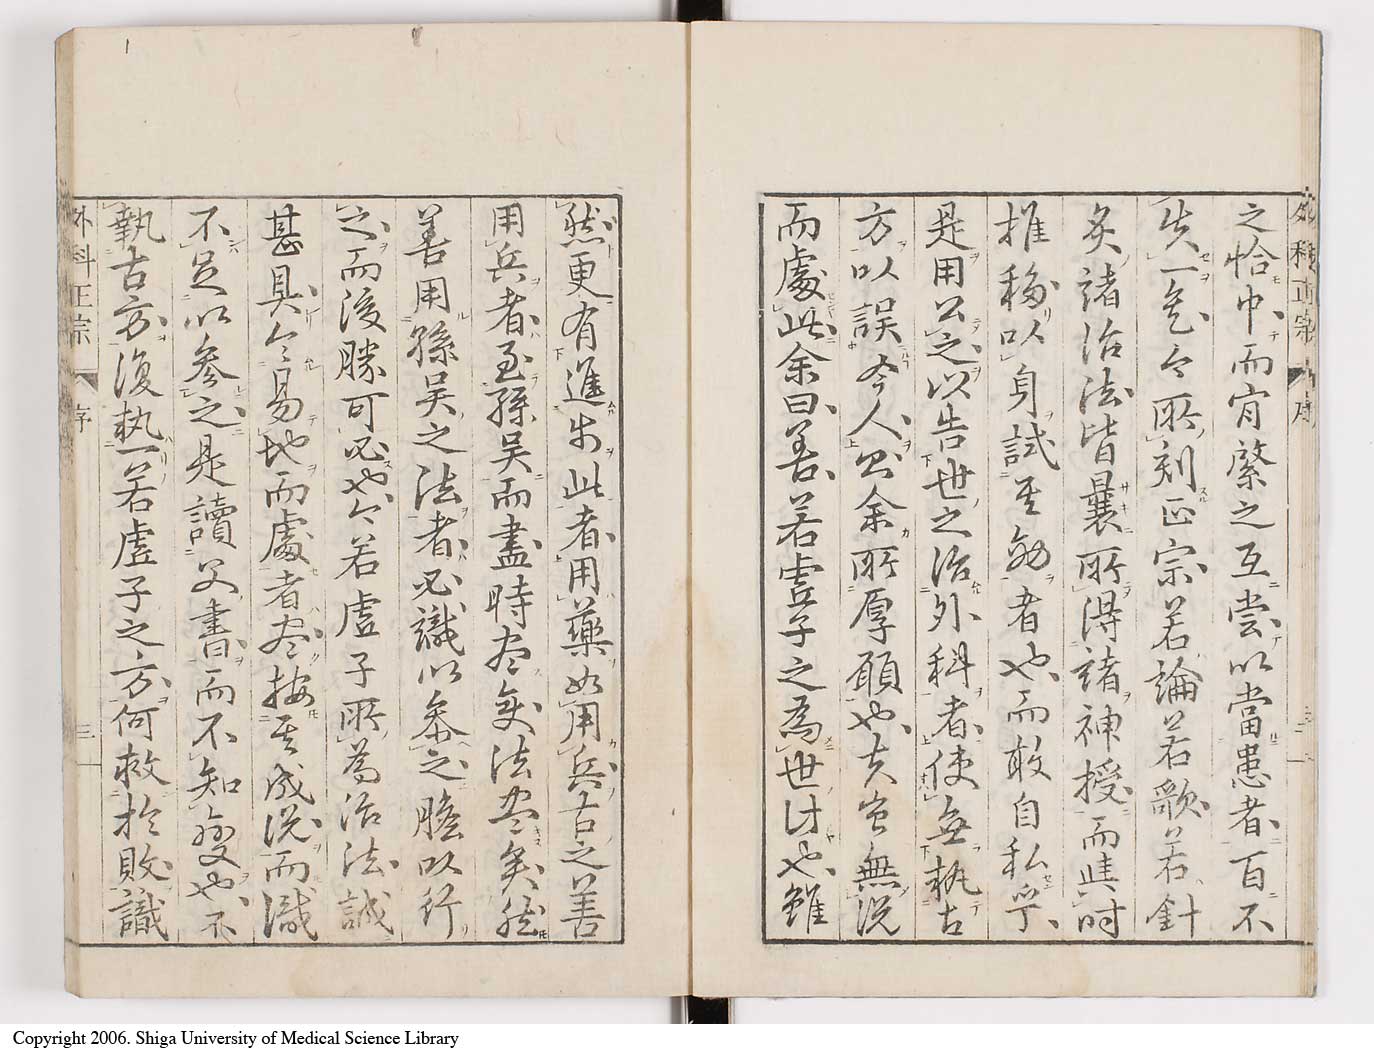 外科正宗 序
之恰中而肯綮之互尝以當患者百不
失一乞今所刻正宗若論若歌若針
炙諸治法皆曩所得諸神授而時
推移以身試其効者也而敢自私乎
是用公之以告世之治外科者使無執古
方以誤今人則余所厚願也夫無説
而處此余曰善若虚子之為世計也雖
然更有進於此者用藥如用兵古之善
用兵者至孫吳而盡時亦兵法盡矣然
善用孫吳之法者必識以參之膽以行
之而後勝可必也今若虚子所為治法誠
甚具令易地而處者亦按其成说而識
不足以參之是讀父書而不知變也不
執古方復執一若虚子之方何救於敗識
外科正宗 序 三
Copyright 2006. Shiga University of Medical Science Library